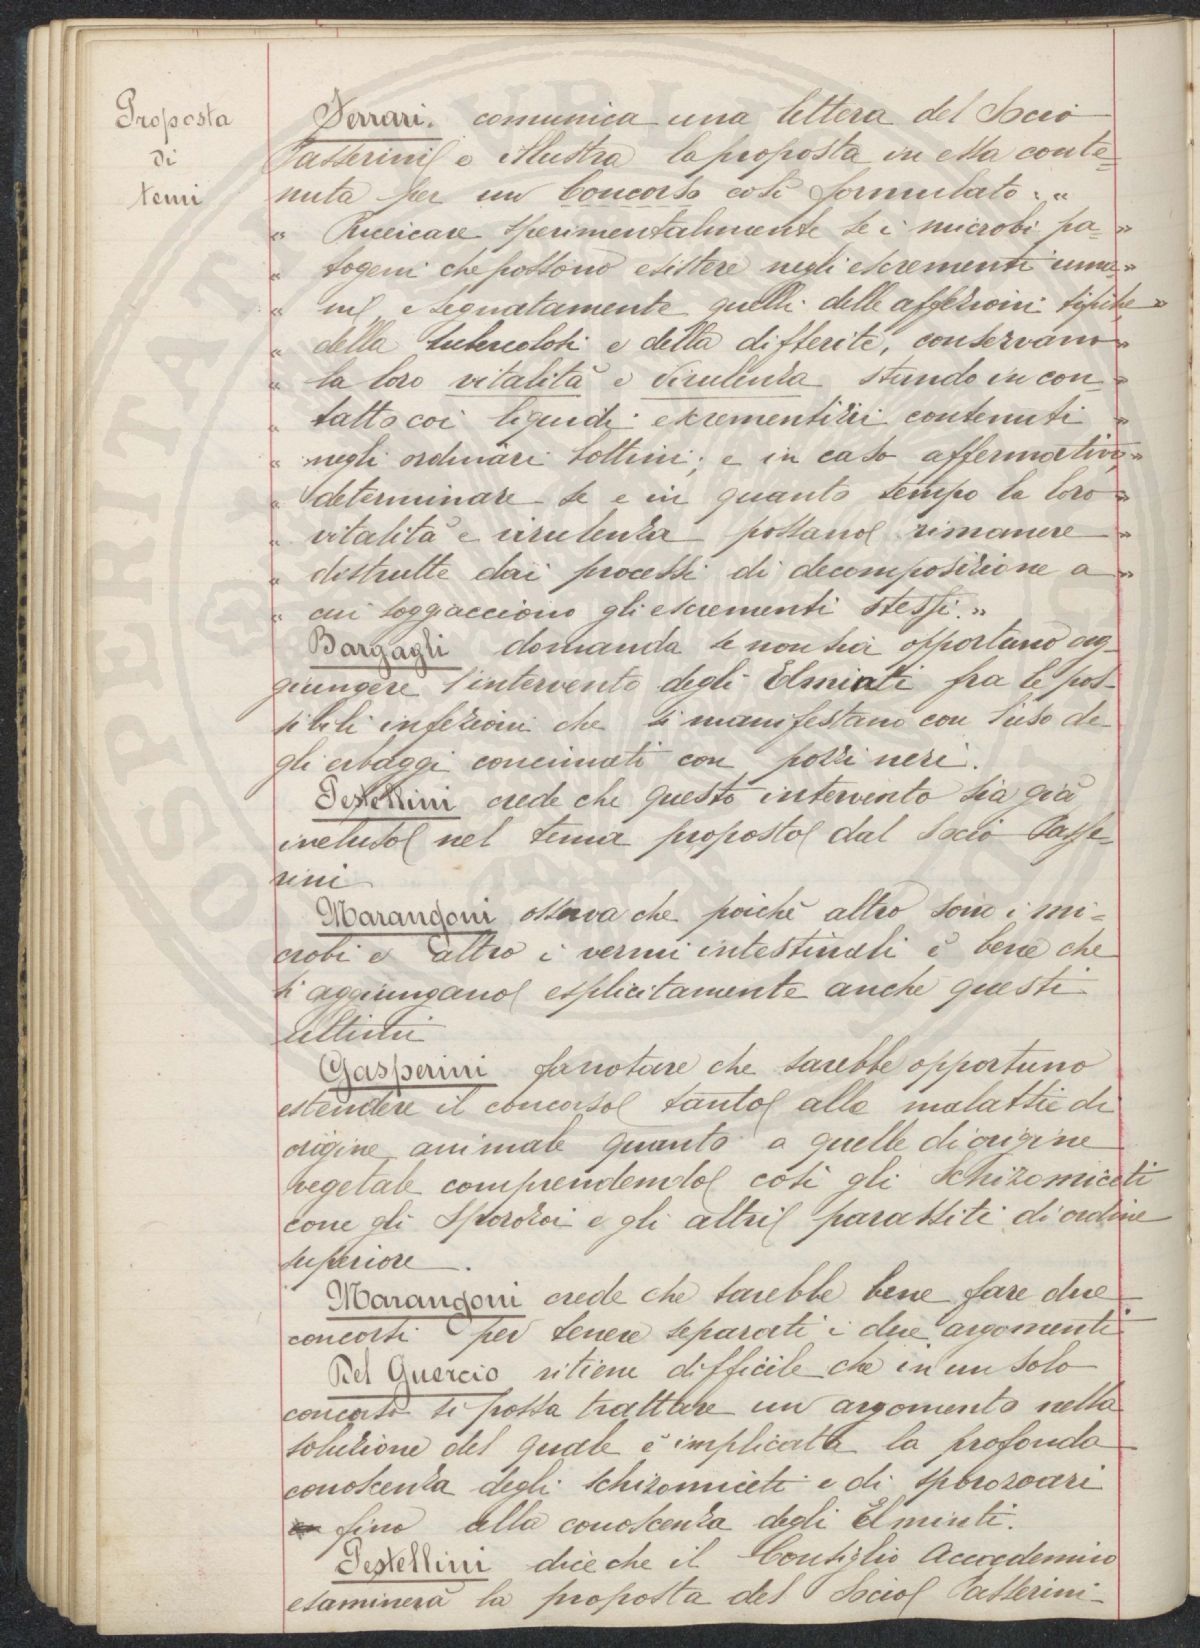 Proposta
di
temi
Ferrari. comunica una lettera del Socio
Passerini e illustra la proposta in essa conte=
nuta per un Concorso così formulato: "
" Ricercare sperimentalmente se i microbi pa= "
" togeni che possono esistere negli escrementi uma= "
" ni, e segnatamente quelli delle affezioni tifiche "
" della tubercolosi e della difterite, conservano "
" la loro vitalità e virulenza stando in con= "
" tatto coi liquidi escrementizi contenuti "
" negli ordinari bottini; e in caso affermativo, "
" determinare se e in quanto tempo la loro "
" vitalità e virulenza possano rimanere "
" distrutte dai processi di decomposizione a "
" cui soggiacciono gli escrementi stessi. "
Bargagli domanda se non sia opportuno ag-
giungere l'intervento degli Elminti fra le pos-
sibili infezioni che si manifestano con l'uso de
gli erbaggi concimati con pozzi neri.
Pestellini crede che questo intervento sia già
incluso nel tema proposto dal Socio Passe-
rini
Marangoni osserva che poichè altro sono i mi=
crobi e altro i vermi intestinali è bene che
si aggiungano esplicitamente anche questi
ultimi
Gasperini fa notare che sarebbe opportuno
estendere il concorso tanto alle malattie di
origine animale quanto a quelle di origine
vegetale comprendendo così gli Schizomiceti
come gli Sporozoi e gli altri parassiti di ordine
superiore.
Marangoni crede che sarebbe bene fare due
concorsi per tenere separati i due argomenti
Del Guercio ritiene difficile che in un solo
concorso si possa trattare un argomento nella
soluzione del quale è implicata la profonda
conoscenza degli schizomiceti e di sporozoari
fino alla conoscenza degli Elminti.
Pestellini dice che il Consiglio Accademico
esaminerà la proposta del Socio Passerini-